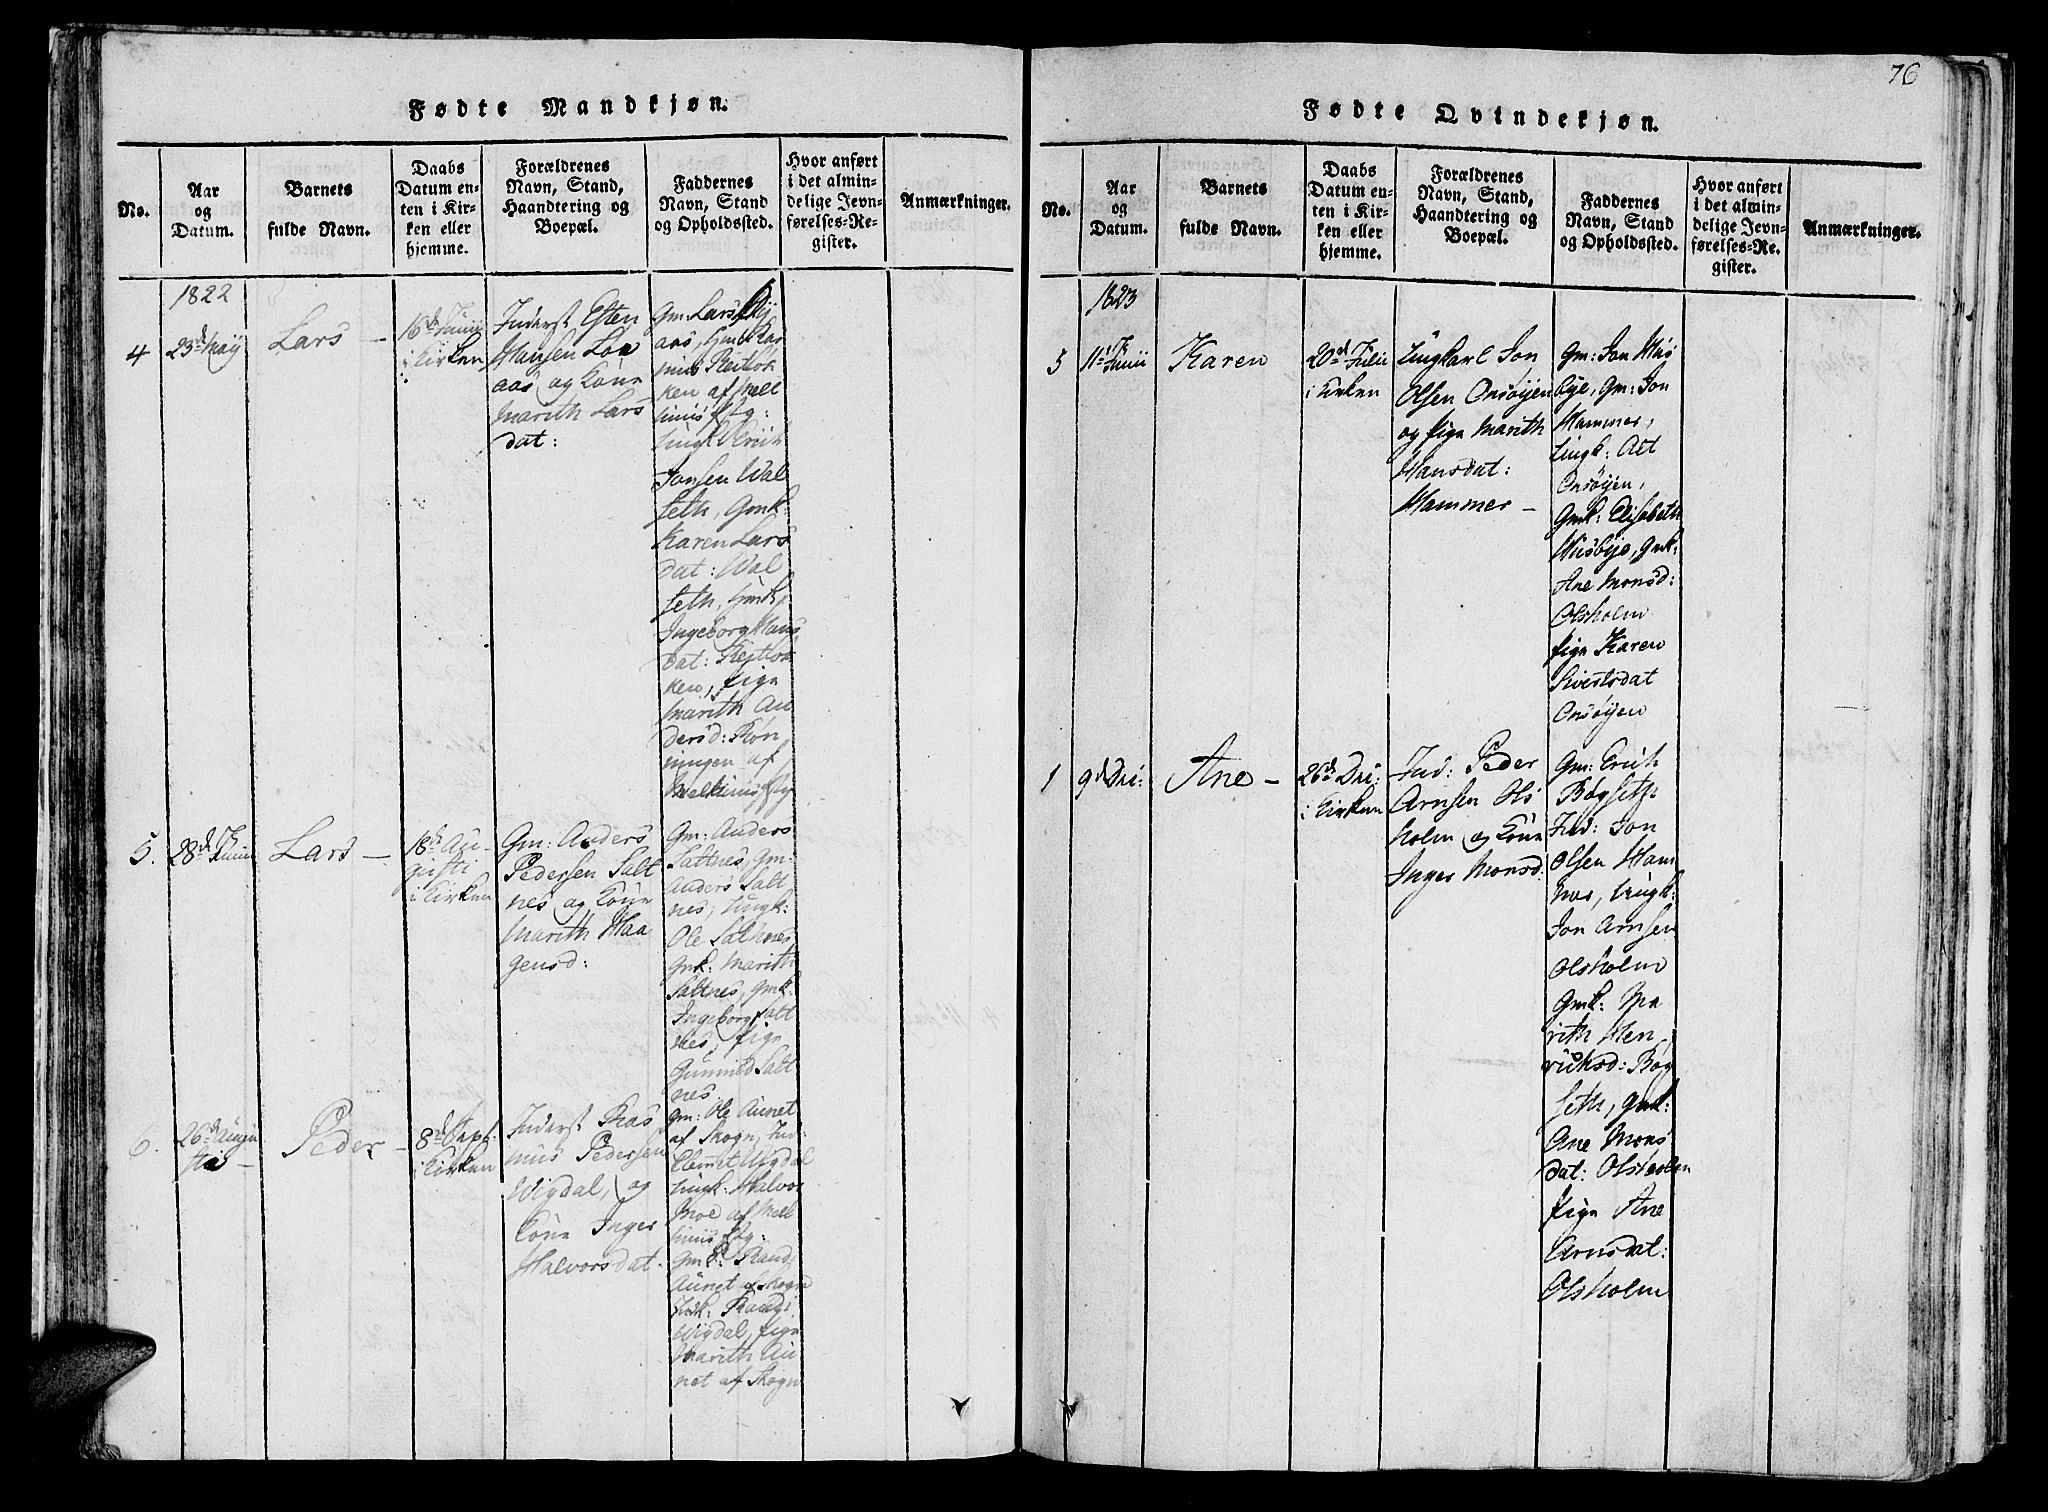 76
Fødte Mandkjøn.
No.
Aar
og
Datum.
Barnets
fulde Navn.
Daabs
Datum en-
ten i Kir-
ken eller
hjemme.
Forældrenes
Navn, Stand,
Haandtering og
Boepæl.
Faddernes
Navn, Stand
og Opholdssted.
Hvor anført
i det almin-
delige Jevn-
førelses-Re-
gister.
Anmærkninger.
1822
4
23d May
Lars –
16d Junii
i Kirken
Inderst Esten
Hansen Loe
aas og Kone
Marith Lars
dat:
Gm: Lars
aas,
ken af Mell
huus Pg:
Ungk. Erich
Jonsen Wal
seth, Gmk:
Karen Lars
dat: Wal
seth,
Ingeborg Hans
dat:
ken, Pige
Marith An
dersd: Røn
ningen af
Melhuus Pg
5.
28d Junii
Lars –
18d Au-
gusti
i Kirken
Gm: Anders
Pedersen Salt
nes og Kone
Marith Haa
gensd:
Gm: Anders
Saltnes, Gm:
Anders Salt
nes, Ungk:
Ole Saltnes
Gmk: Marith
Saltnes, Gmk.
Ingeborg Salt
nes, Pige
Gunnild Salt
nes
6.
26d Augu
sti –
Peder –
8d Sept:
i Kirken
Inderst Ras
mus Pedersen
Wigdal, og
Kone Inger
Halvorsdat.
Gm: Ole Aunet
af Skogn, Ind
Clemet Wigdal
Ungk: Halvor
Moe af Mell
huus Pg:
Gmk: Rand
Aunet af Skogn
Indk: Randi
Wigdal, Pige
Marith Au
net af Skogn
Fødte Qvindekjøn.
No.
Aar
og
Datum.
Barnets
fulde Navn.
Daabs
Datum en-
ten i Kir-
ken eller
hjemme.
Forældrenes
Navn, Stand,
Haandtering og
Boepæl.
Faddernes
Navn, Stand
og Opholdssted.
Hvor anført
i det almin-
delige Jevn-
førelses-Re-
gister.
Anmærkninger.
1823
5
11d Junii
Karen
20d Julii
i Kirken
Ungkarl Jon
Olsen Onsøyen
og Pige Marith
Hansdat:
Hammer –
Gm: Jon Hus
bye, Gm: Jon
Hammer,
Ungk:
Onsøyen,
Gmk: Elisabeth
Husbye, Gmk:
Ane Monsd:
Olsholm
Pige Karen
Sivertsdat
Onsøyen
1
9d Dec:
Ane –
26d Dec:
i Kirken
Ind: Peder
Arnsen Ols
holm og Kone
Inger Monsd:
Gm: Erich
Bøgseth
Ind: Jon
Olsen Ham
mer, Ungk:
Jon Arnsen
Olsholm
Gmk: Ma
rith Hen
richsd: Bøg
seth, Gmk:
Ane Mons
dat: Olsholm
Pige Ane
Arnsdat:
Olsholm